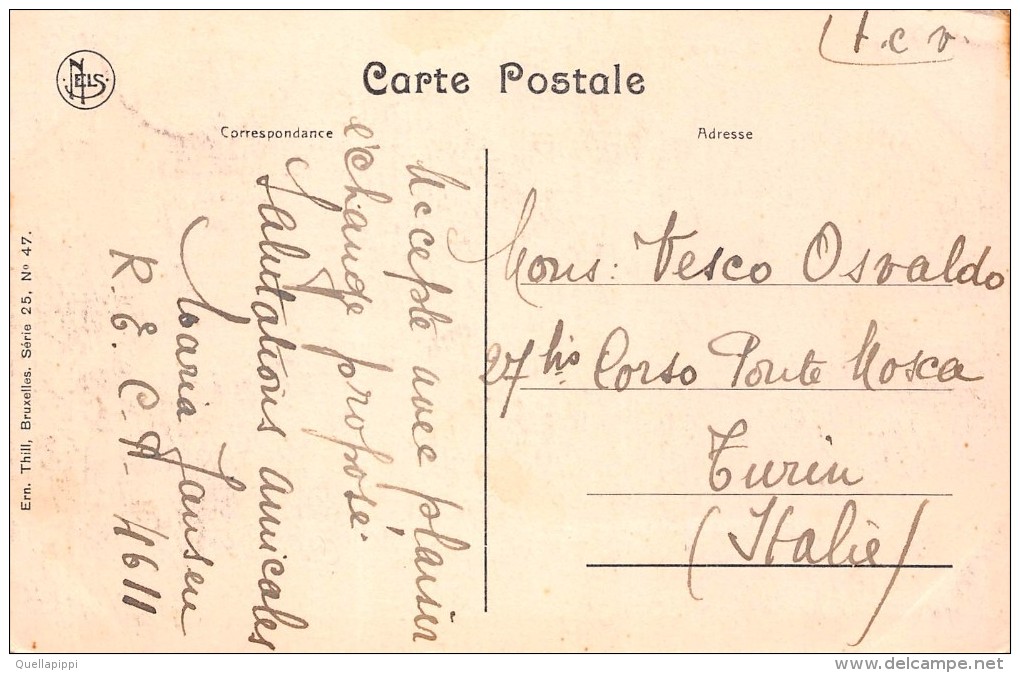 t.c.v.
NELS
Carte Postale
Correspondance
Adresse
Accepte avec plaisir
échange proposé.
Salutations amicales
Maria Jansen
R.E.C.A- 4611
Mons: Vesco Osvaldo
27 bis Corso Ponte Mosca
Turin
(Italie)
Ern. Thill, Bruxelles. Série 25, No 47.
Quellapippi
delcampe.net